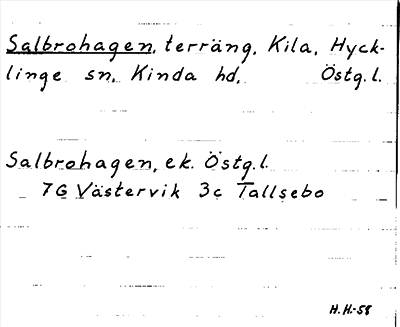 Salbrohagen, terräng, Kila, Hyck-
linge sn, Kinda hd, Östg. l.
Salbrohagen, ek. Östg. l.
7G Västervik 3c Tallsebo
H. H.-58